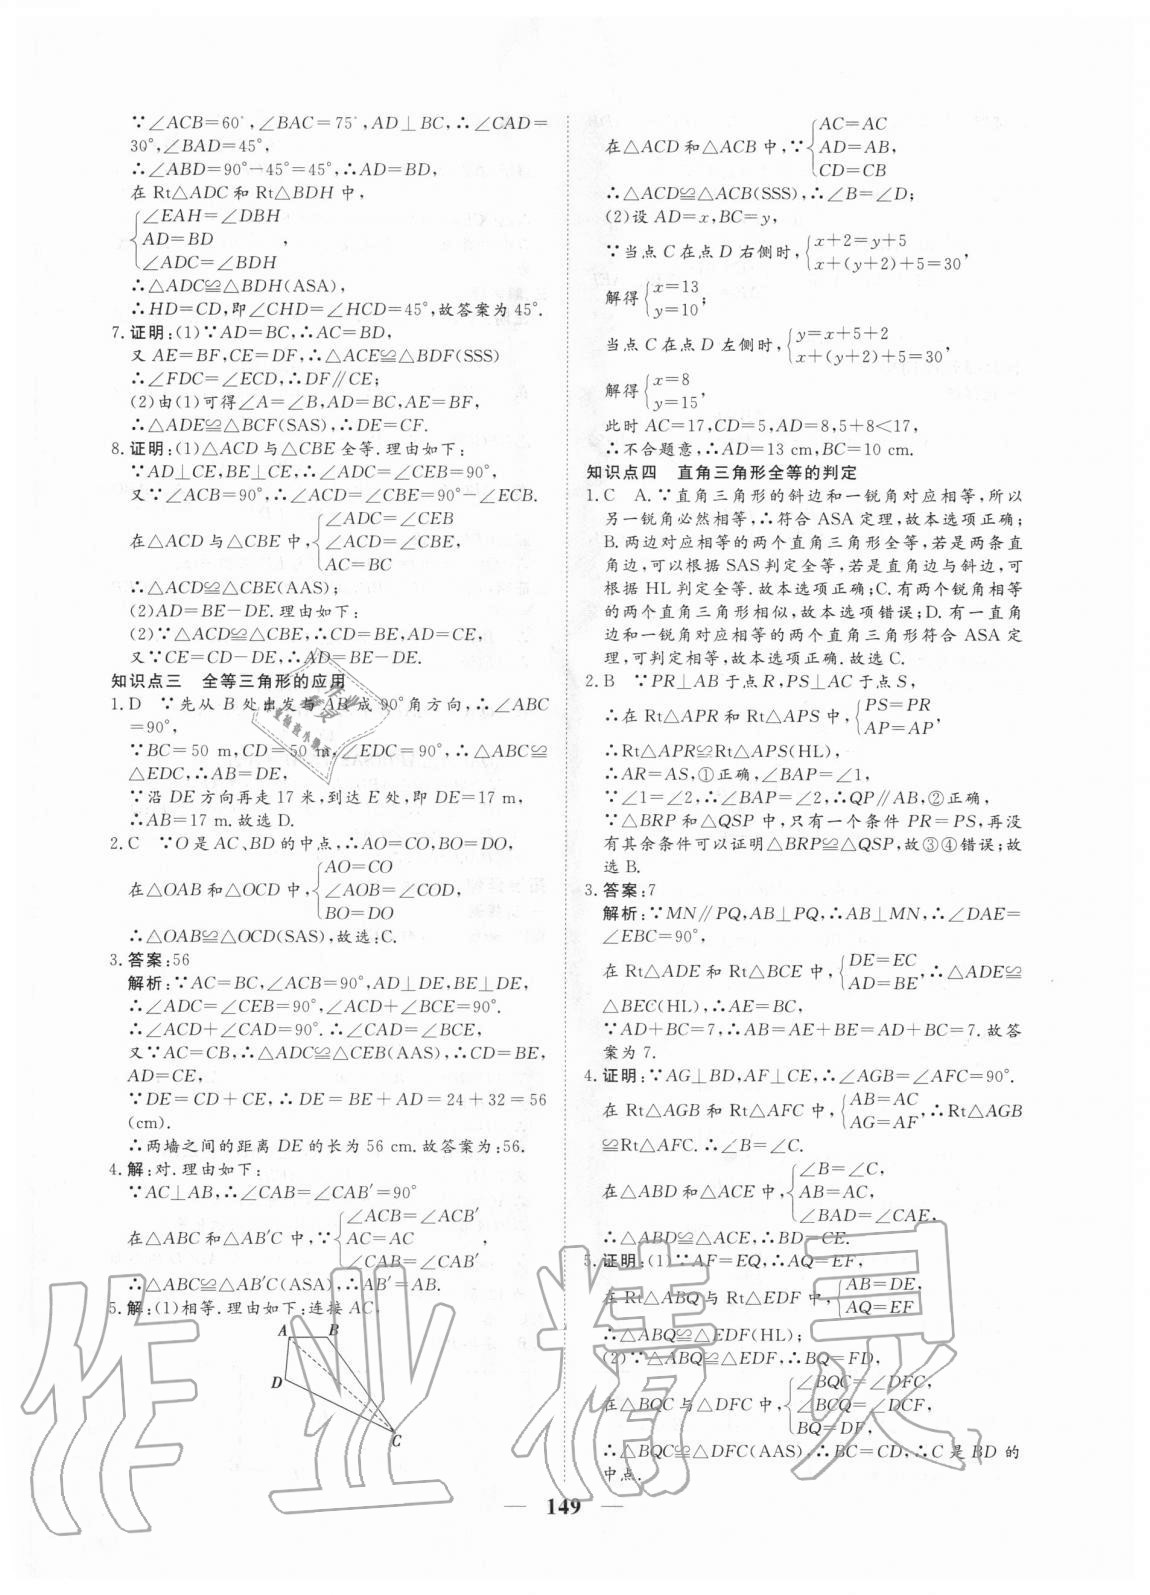 ∵∠ACB=60°,∠BAC=75°,AD⊥BC,∴∠CAD=
30°,∠BAD=45°,
∴∠ABD=90°-45°=45°,∴AD=BD,
在 Rt△ADC 和 Rt△BDH 中,
∠EAH=∠DBH
AD=BD ,
∠ADC=∠BDH
∴△ADC≌△BDH(ASA),
∴HD=CD,即∠CHD=∠HCD=45°,故答案为 45°.
7.证明:(1)∵AD=BC,∴AC=BD,
又 AE=BF,CE=DF,∴△ACE≌△BDF(SSS)
∴∠FDC=∠ECD,∴DF∥CE;
(2)由(1)可得∠A=∠B,AD=BC,AE=BF,
∴△ADE≌△BCF(SAS),∴DE=CF.
8.证明:(1)△ACD 与△CBE 全等.理由如下:
∵AD⊥CE,BE⊥CE,∴∠ADC=∠CEB=90°,
又∵∠ACB=90°,∴∠ACD=∠CBE=90°-∠ECB.
在△ACD 与△CBE 中,
∠ADC=∠CEB
∠ACD=∠CBE,
AC=BC
∴△ACD≌△CBE(AAS);
(2)AD=BE-DE.理由如下:
(2)∵△ACD≌△CBE,∴CD=BE,AD=CE,
又∵CE=CD-DE,∴AD=BE-DE.
知识点三 全等三角形的应用
1.D ∵先从 B 处出发与 AB 成 90°角方向,∴∠ABC
=90°,
∵BC=50 m,CD=50 m,∠EDC=90°,∴△ABC≌
△EDC,∴AB=DE,
∵沿 DE 方向再走 17 米,到达 E 处,即 DE=17 m,
∴AB=17 m.故选 D.
2.C ∵O 是 AC、BD 的中点,∴AO=CO,BO=DO,
在△OAB 和△OCD 中,
AO=CO
∠AOB=∠COD,
BO=DO
∴△OAB≌△OCD(SAS),故选:C.
3.答案:56
解析:∵AC=BC,∠ACB=90°,AD⊥DE,BE⊥DE,
∴∠ADC=∠CEB=90°,∠ACD+∠BCE=90°.
∴∠ACD+∠CAD=90°.∴∠CAD=∠BCE,
又∵AC=CB,∴△ADC≌△CEB(AAS),∴CD=BE,
AD=CE,
∵DE=CD+CE,∴DE=BE+AD=24+32=56
(cm).
∴两墙之间的距离 DE 的长为 56 cm.故答案为:56.
4.解:对.理由如下:
∵AC⊥AB,∴∠CAB=∠CAB′=90°
在△ABC 和△AB′C 中,
∠ACB=∠ACB′
AC=AC ,
∠CAB=∠CAB′
∴△ABC≌△AB′C(ASA),∴AB′=AB.
5.解:(1)相等.理由如下:连接 AC,
A B
D
C
在△ACD 和△ACB 中,∵
AC=AC
AD=AB,
CD=CB
∴△ACD≌△ACB(SSS),∴∠B=∠D;
(2)设 AD=x,BC=y,
∵当点 C 在点 D 右侧时,
x+2=y+5
x+(y+2)+5=30,
解得
x=13
y=10;
当点 C 在点 D 左侧时,
y=x+5+2
x+(y+2)+5=30,
解得
x=8
y=15,
此时 AC=17,CD=5,AD=8,5+8<17,
∴不合题意,∴AD=13 cm,BC=10 cm.
知识点四 直角三角形全等的判定
1.C A.∵直角三角形的斜边和一锐角对应相等,所以
另一锐角必然相等,∴符合 ASA 定理,故本选项正确;
B.两边对应相等的两个直角三角形全等,若是两条直
角边,可以根据 SAS 判定全等,若是直角边与斜边,可
根据 HL 判定全等.故本选项正确;C.有两个锐角相等
的两个直角三角形相似,故本选项错误;D.有一直角
边和一锐角对应相等的两个直角三角形符合 ASA 定
理,可判定相等,故本选项正确.故选 C.
2.B ∵PR⊥AB 于点 R,PS⊥AC 于点 S,
∴在 Rt△APR 和 Rt△APS 中,
PS=PR
AP=AP,
∴Rt△APR≌Rt△APS(HL),
∴AR=AS,①正确,∠BAP=∠1,
∵∠1=∠2,∴∠BAP=∠2,∴QP∥AB,②正确,
∵△BRP 和△QSP 中,只有一个条件 PR=PS,再没
有其余条件可以证明△BRP≌△QSP,故③④错误;故
选 B.
3.答案:7
解析:∵MN∥PQ,AB⊥PQ,∴AB⊥MN,∴∠DAE=
∠EBC=90°,
在 Rt△ADE 和 Rt△BCE 中,
DE=EC
AD=BE,
∴△ADE≌
△BEC(HL),∴AE=BC,
∵AD+BC=7,∴AB=AE+BE=AD+BC=7.故答
案为 7.
4.证明:∵AG⊥BD,AF⊥CE,∴∠AGB=∠AFC=90°.
在 Rt△AGB 和 Rt△AFC 中,
AB=AC
AG=AF,
∴Rt△AGB
≌Rt△AFC.∴∠B=∠C.
在△ABD 和△ACE 中,
∠B=∠C,
AB=AC,
∠BAD=∠CAE,
∴△ABD≌△ACE,∴BD=CE.
5.证明:(1)∵AF=EQ,∴AQ=EF,
在 Rt△ABQ 与 Rt△EDF 中,
AB=DE,
AQ=EF
∴△ABQ≌△EDF(HL);
(2)∵△ABQ≌△EDF,∴BQ=FD,
在△BCQ 与△DFC 中,
∠BQC=∠DFC,
∠BCQ=∠DCF,
BQ=DF,
∴△BQC≌△DFC(AAS),∴BC=CD,∴C 是 BD 的
中点.
— 149 —
作业精灵